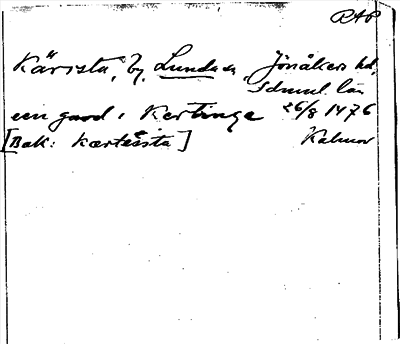 RAP
Kärrsta, by, Lunda sn Jönåkers hd,
Södml. län
een gaard i Kertinge 26/8 1476
[Bak: Karteista] Kalmar